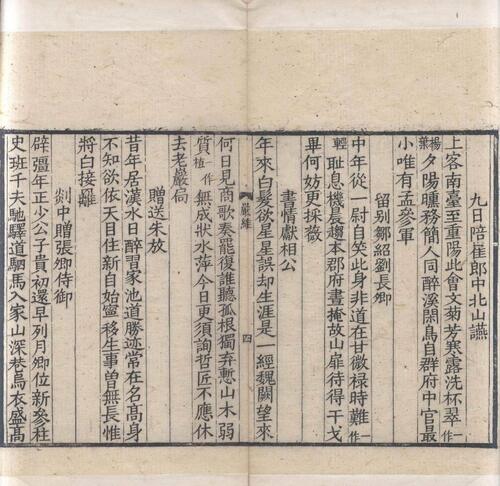 九日陪崔郎中北山讌
上客南臺至重陽此會文菊芳寒露洗杯翠一作
揚葉夕陽曛務簡人同醉溪閑鳥自群府中官最
小唯有孟參軍
留别鄒紹劉長卿
中年從一尉自笑此身非道在甘微祿時難一作
輕耻息機晨趨本郡府晝掩故山扉待得干戈
畢何妨更採薇
書情獻相公
年來白髮欲星星誤却生涯是一經魏闕望來
嚴維 四
何日見商歌奏罷復誰聽孤根獨弃慙山木弱
質一作植無成狀水萍今日更須詢哲匠不應休
去老巖扃
贈送朱放
昔年居漢水日醉習家池道勝迹常在名髙身
不知欲依天目住新自始寧移生事曾無長惟
將白接䍦
剡中贈張卿侍御
辟彊年正少公子貴初還早列月卿位新參柱
史班千夫馳驛道駟馬入家山深巷烏衣盛髙